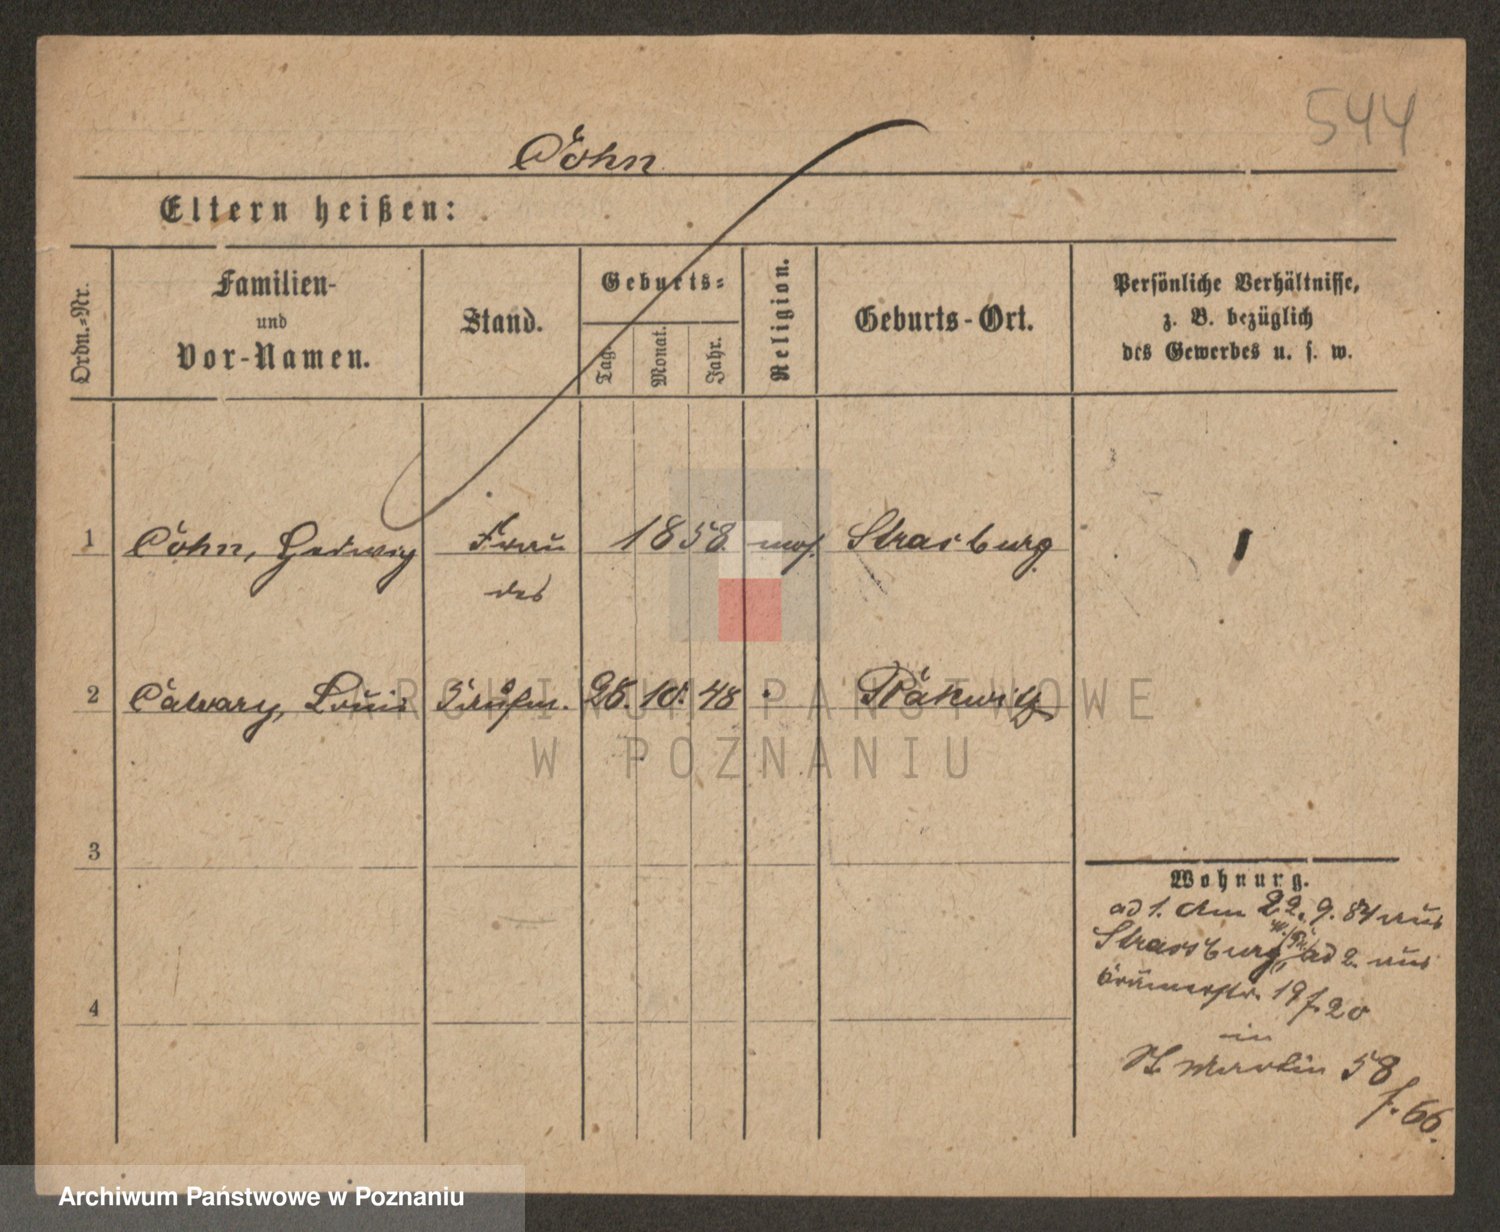 544
Cohn
Eltern heißen:
Ordn.-Nr.
Familien-
und
Vor-Namen.
Stand.
Geburts-
Tag.
Monat.
Jahr.
Religion.
Geburts-Ort.
Persönliche Verhältnisse,
z. B. bezüglich
des Gewerbes u. s. w.
1 Cohn, Hedwig Frau 1858 mos. Strasburg
des
2 Calvary, Louis Kaufm. 28. 10. 48 Rakwitz
ARCHIWUM PAŃSTWOWE
W POZNANIU
3
4
Wohnung.
ad 1. Am 22. 9. 84 aus
Strassburg, ad 2 aus
Krämerstr. 19 f. 20
in
St. Martin 58
f. 66.
Archiwum Państwowe w Poznaniu